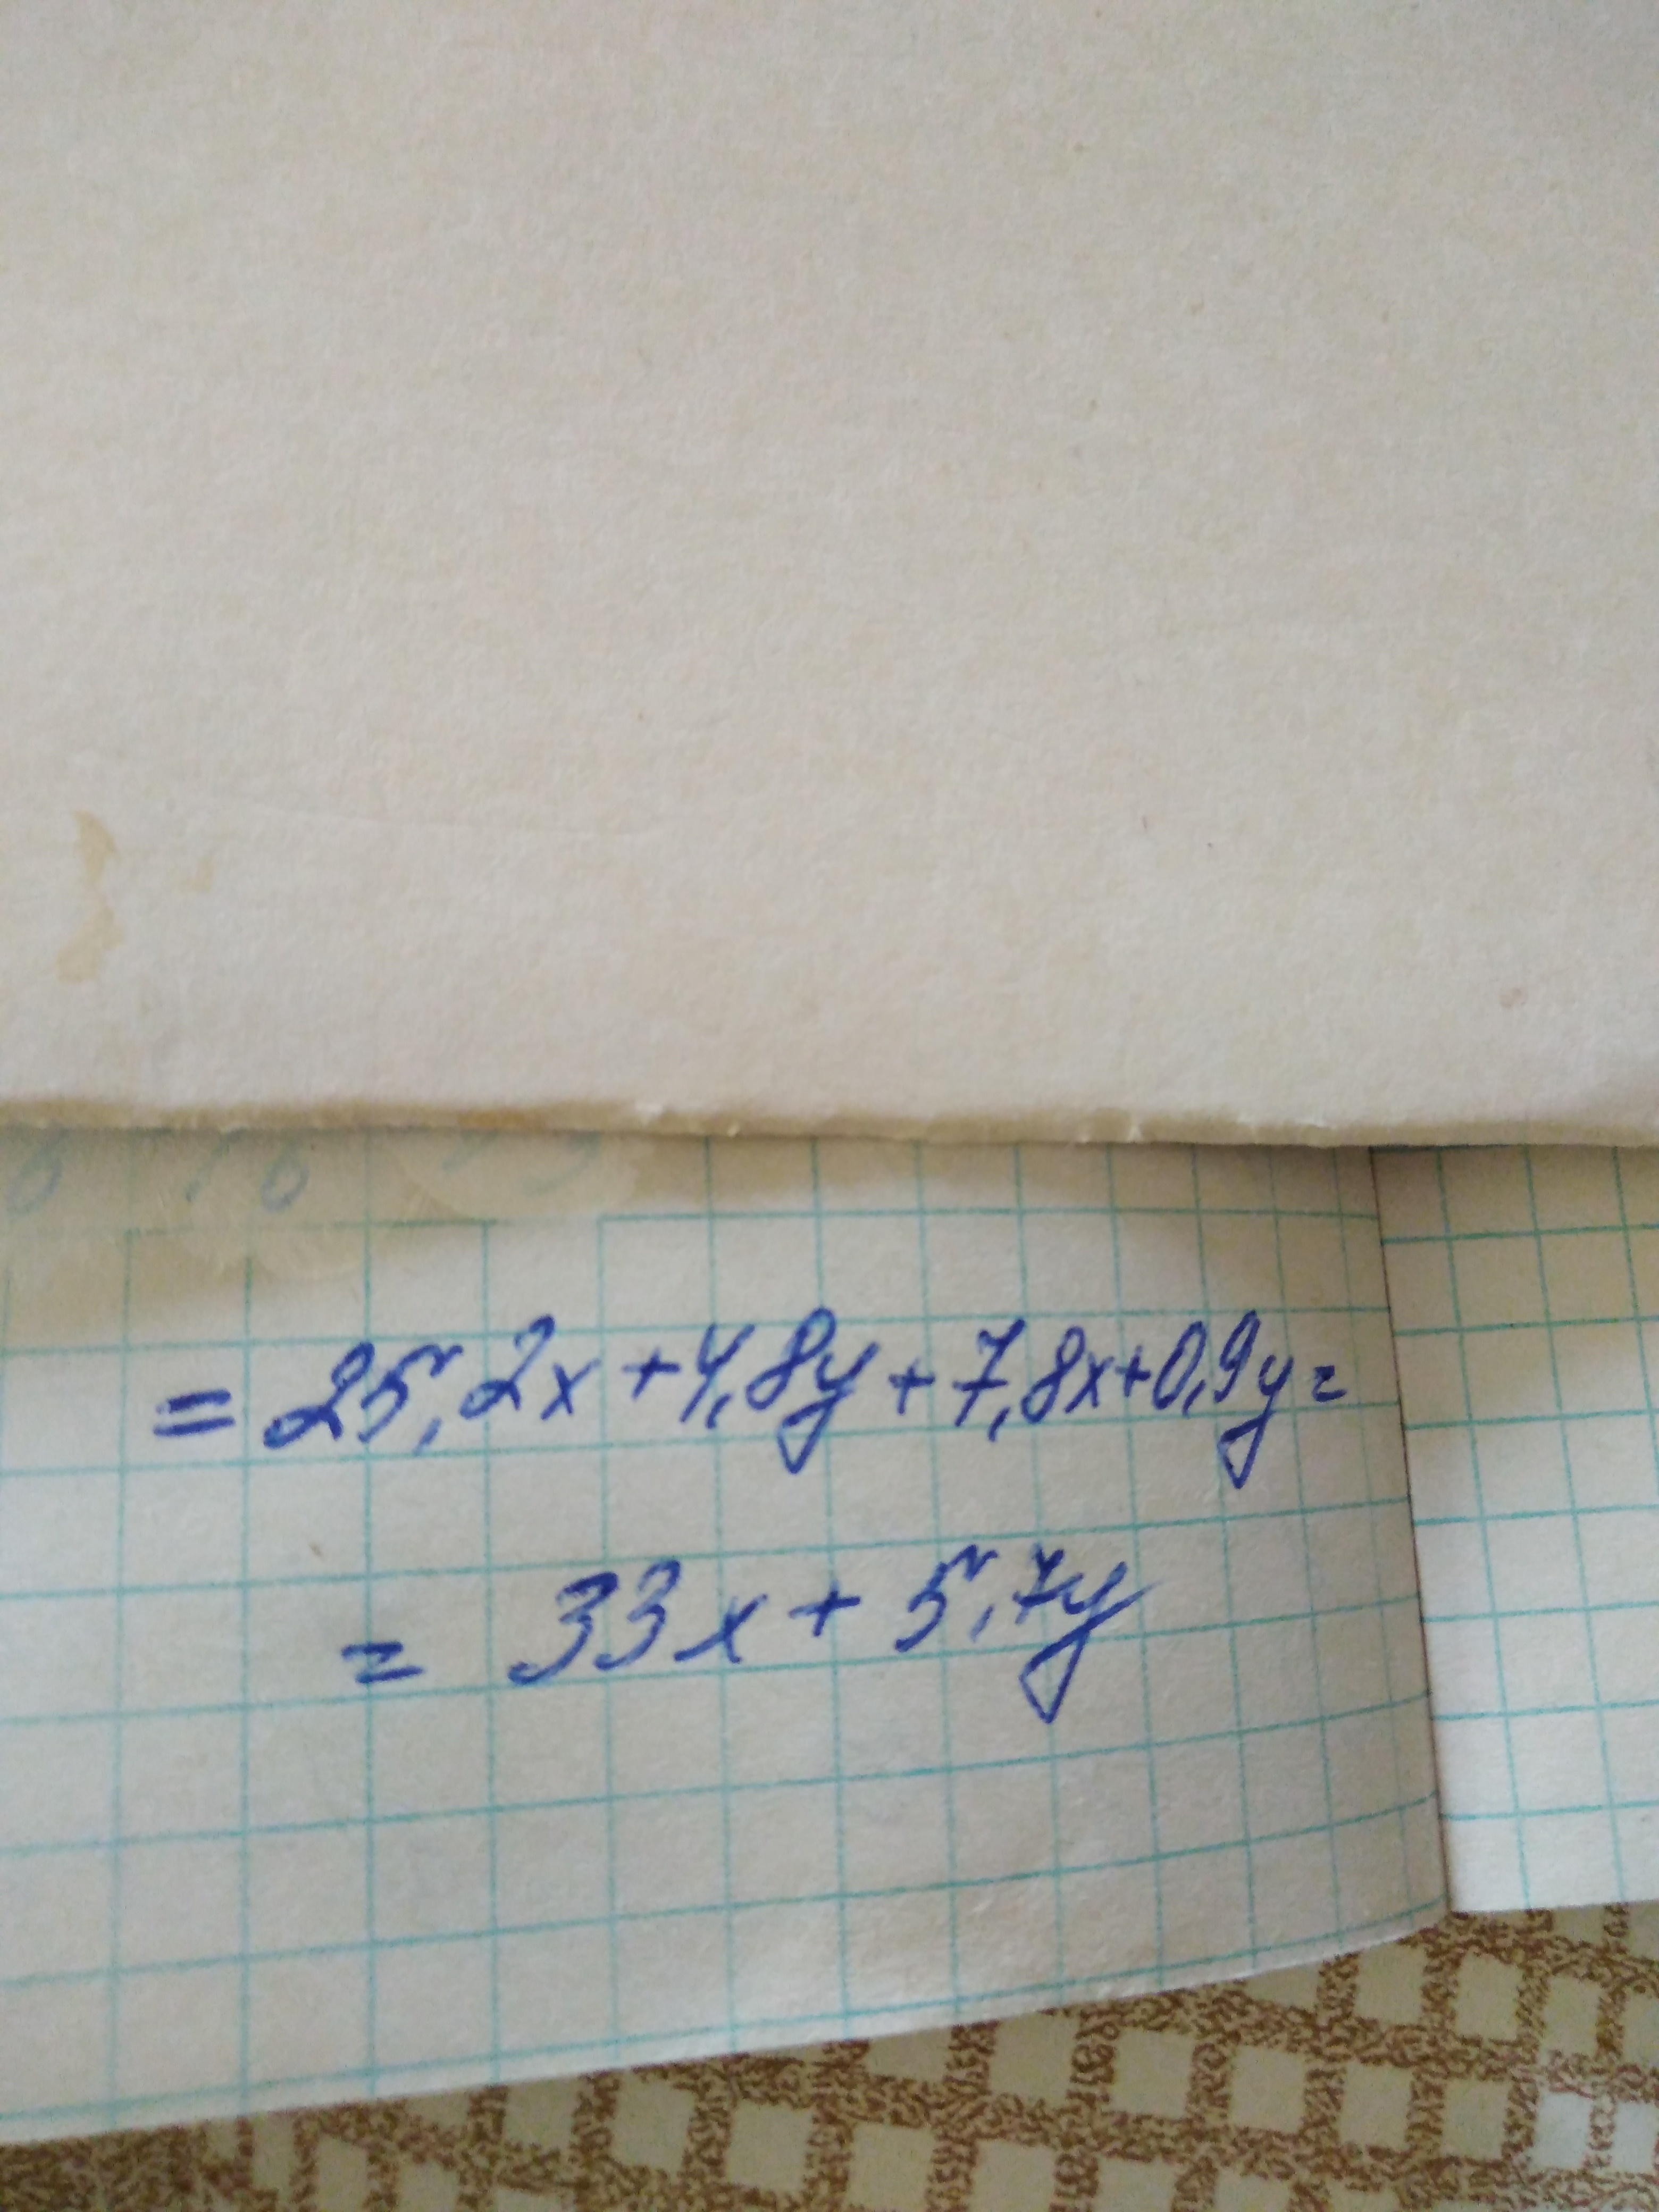 = 25,2x + 4,8y + 7,8x + 0,9y =
= 33x + 5,7y